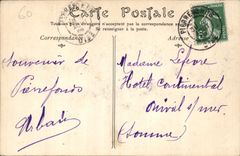 60
Carte Postale
Tous les pays étrangers n'acceptent pas la correspondance
se renseigner à la poste
Correspondance
Adresse
Souvenir de
Pierrefonds
Urbain
Madame Lefevre
Hotel Continental
Onival s/mer
(Somme)